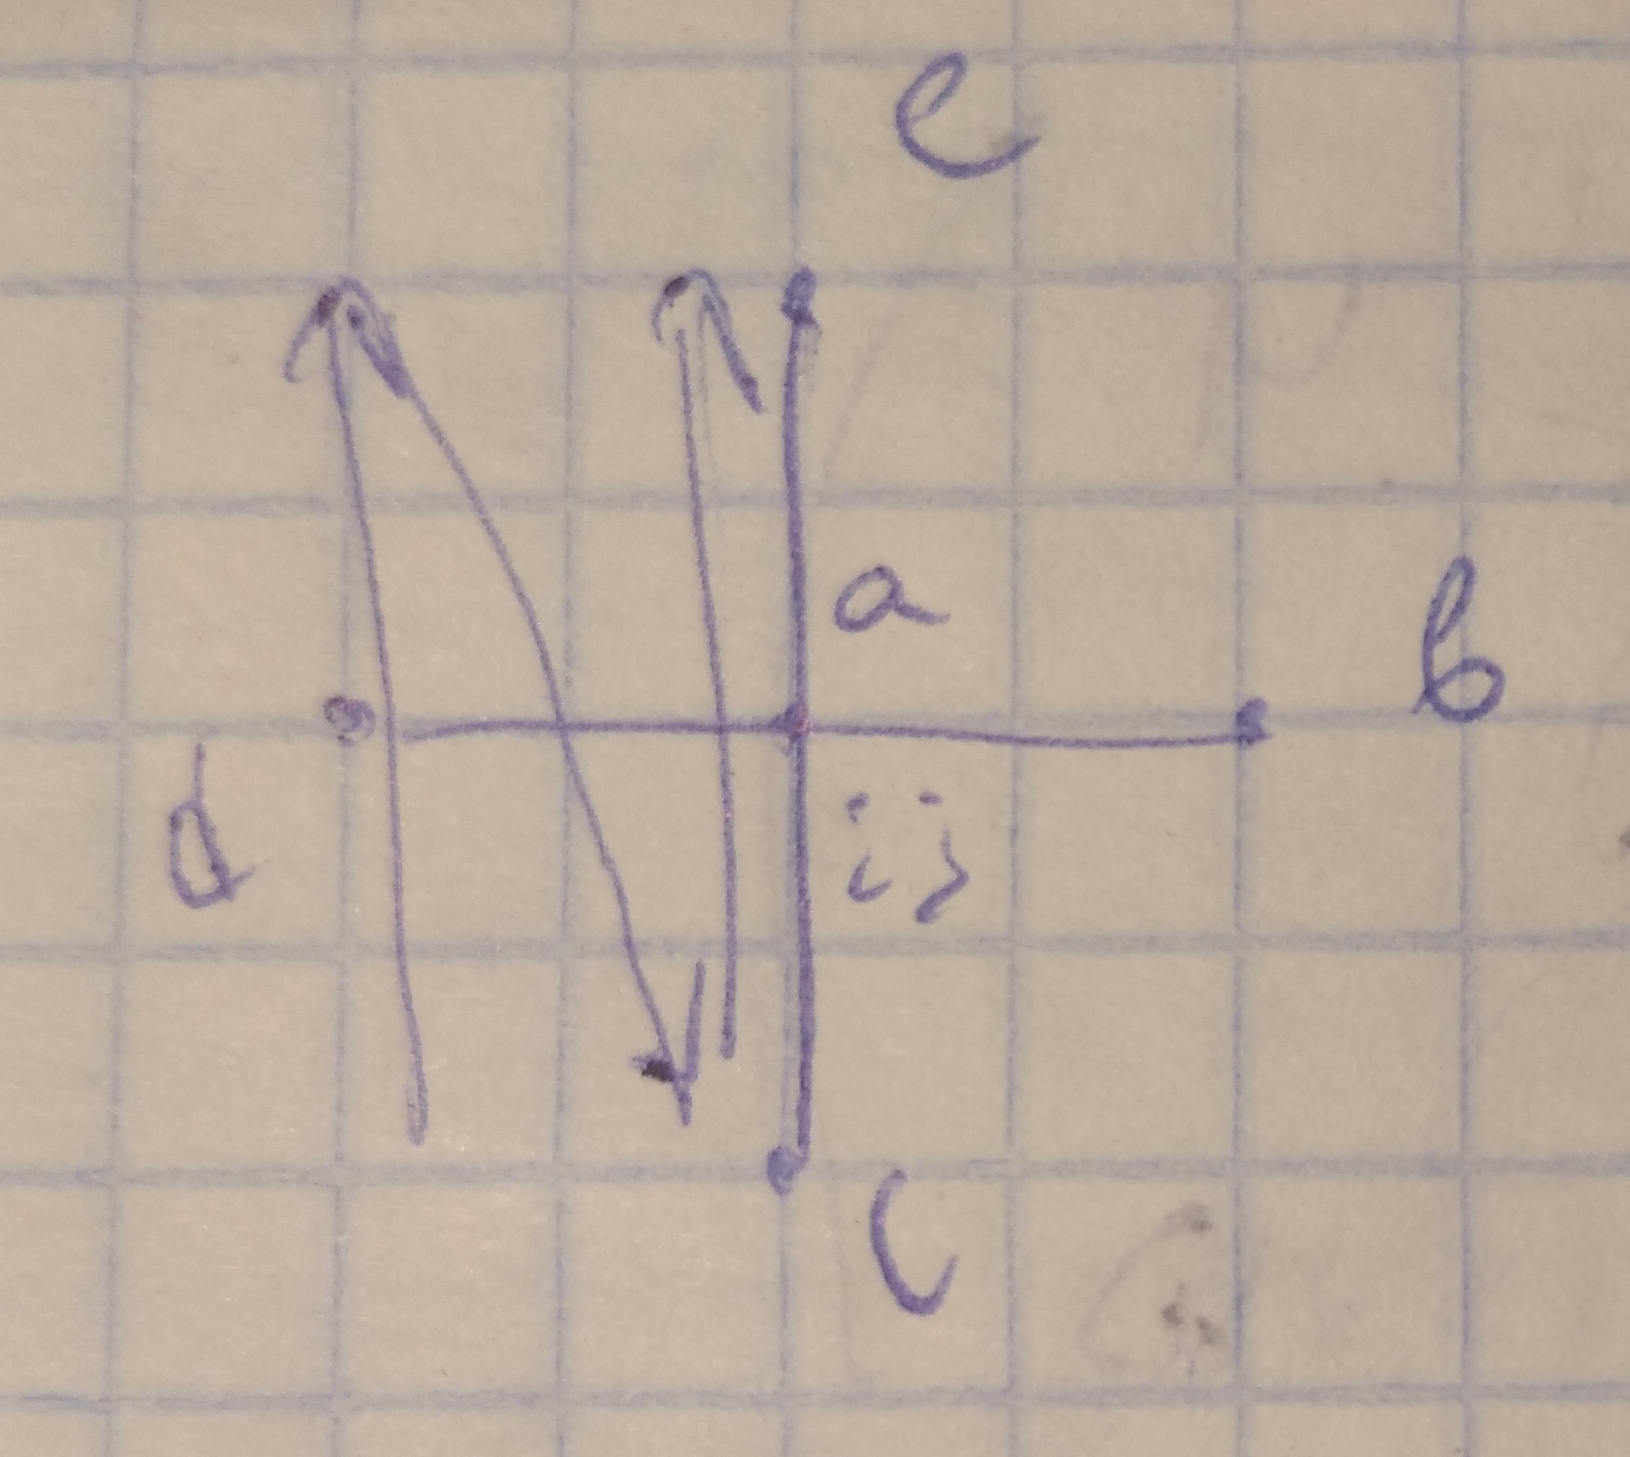 e
a
b
d
i j
c